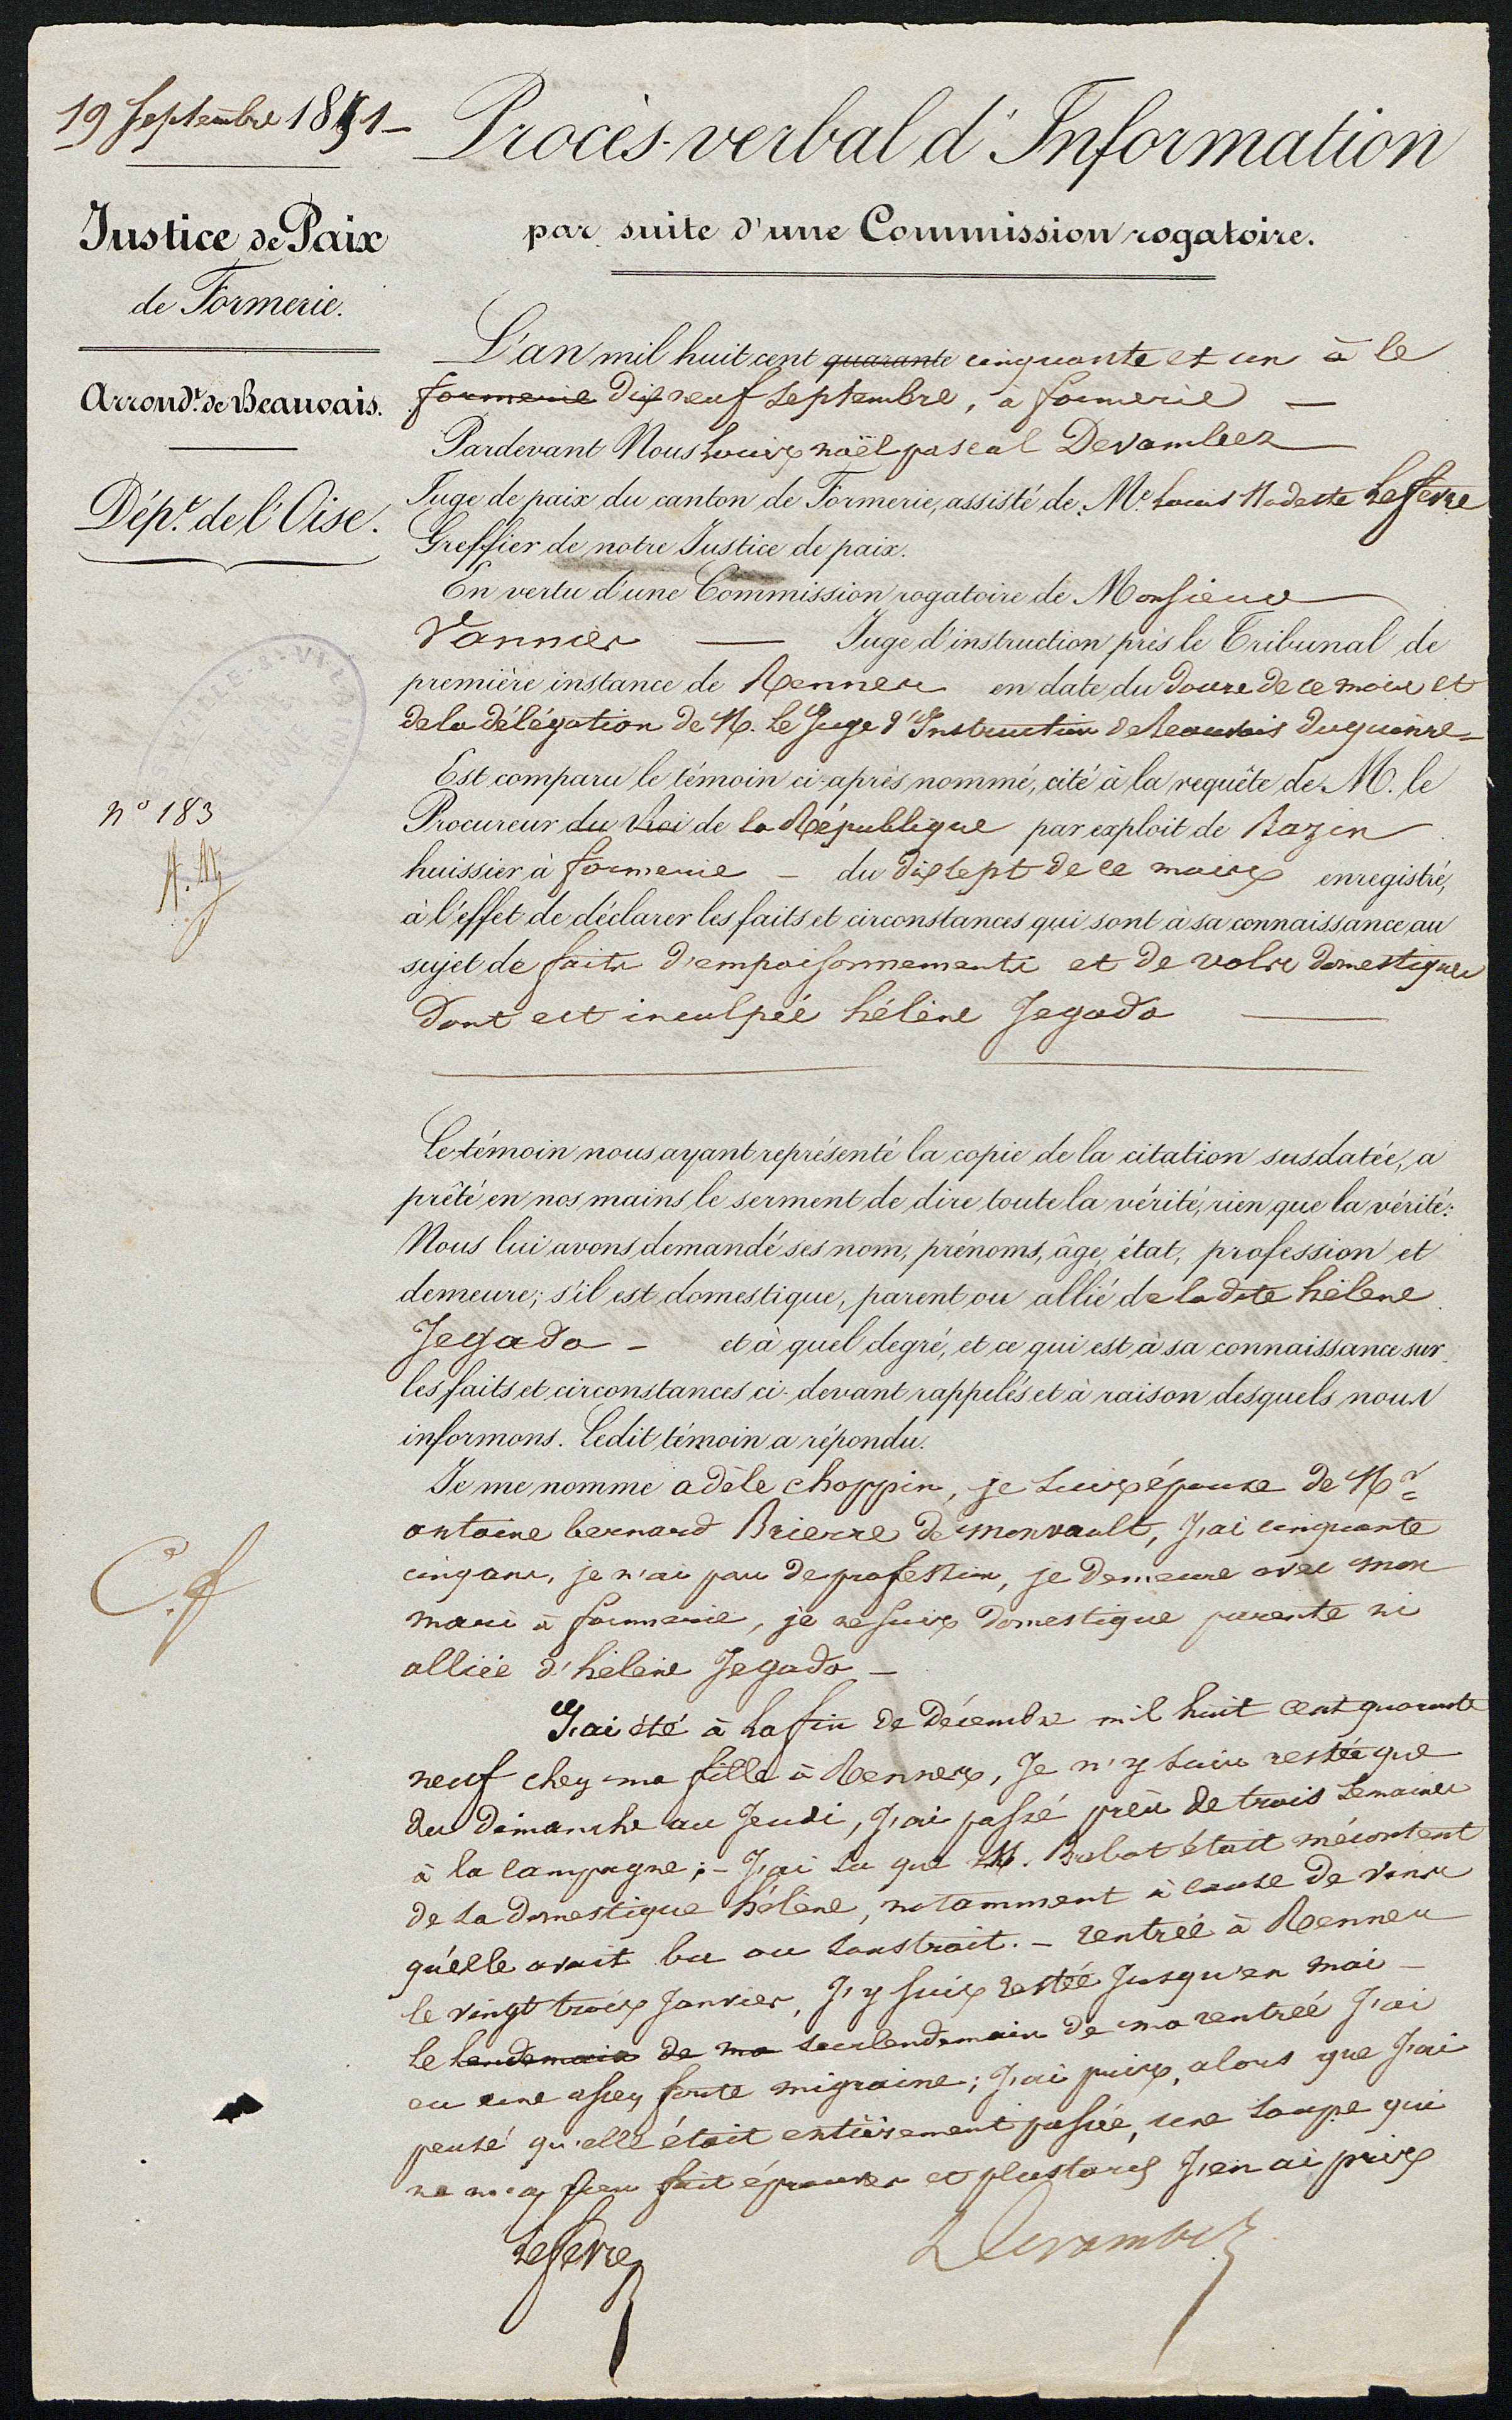 19 Septembre 1851 -
Justice de Paix
de Formerie.
Arrond.t de Beauvais.
Dép.t de l'Oise.
Procès-verbal d'Information
par suite d'une Commission rogatoire.
L'an mil huit cent quarante cinquante et un à le
formerie dix neuf Septembre, a formerie —
Pardevant Nous Louis noël pascal Devambez
Juge de paix du canton de Formerie, assisté de Me. Louis Modeste Lefevre
Greffier de notre Justice de paix.
En vertu d'une Commission rogatoire de Monsieur
Vannier — Juge d'instruction près le Tribunal de
première instance de Rennes en date du douze de ce mois et
de la délégation de M. Le Juge d'Instruction de Beauvais du quinze -
Est comparu le témoin ci-après nommé, cité à la requête de M. le
Procureur du Roi de la République par exploit de Bazin
huissier à formerie - du dix sept de ce mois enregistré,
à l'effet de déclarer les faits et circonstances qui sont à sa connaissance au
sujet de faits d'empoisonnements et de vols domestiques
dont est inculpée hélène Jegado —
n° 183
Le témoin nous ayant représenté la copie de la citation susdatée, a
prêté en nos mains le serment de dire toute la vérité, rien que la vérité:
Nous lui avons demandé ses nom, prénoms, âge, état, profession et
demeure; s'il est domestique, parent ou allié de ladite hélène
Jegado - et à quel degré, et ce qui est à sa connaissance sur
les faits et circonstances ci-devant rappelés et à raison desquels nous
informons. Ledit témoin a répondu.
Je me nomme adèle choppin, je suis épouse de Mr
antoine bernard Brierre de monvault, J'ai cinquante
cinq ans, je n'ai pas de profession, je demeure avec mon
mari à formerie, je ne suis domestique parente ni
alliée d'hélène Jegado -
C. f
J'ai été à la fin de Décembre mil huit cent quarante
neuf chez ma fille à Rennes, Je n'y suis restée que
du dimanche au Jeudi, J'ai passé près de trois semaines
à la campagne; - J'ai su que M. Rabot était mécontent
de sa domestique hélène, notamment à cause de vins
qu'elle avait bu ou soustrait. - rentrée à Rennes
le vingt trois Janvier, J'y suis restée Jusqu'en mai -
le lendemain de ma surlendemain de ma rentrée J'ai
eu une assez forte migraine; J'ai pris, alors que J'ai
pensé qu'elle était entièrement passée, une soupe qui
ne m'a rien fait éprouver et plustard J'en ai pris
Lefevre
Devambez